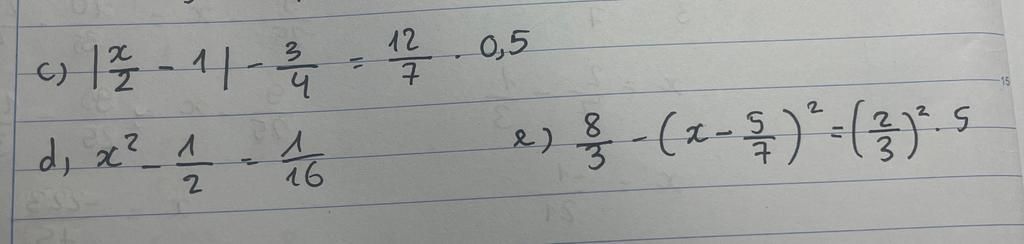 c) |x/2 - 1| - 3/4 = 12/7 · 0,5
d, x² - 1/2 = 1/16
e) 8/3 - (x - 5/7)² = (2/3)² · 5
15